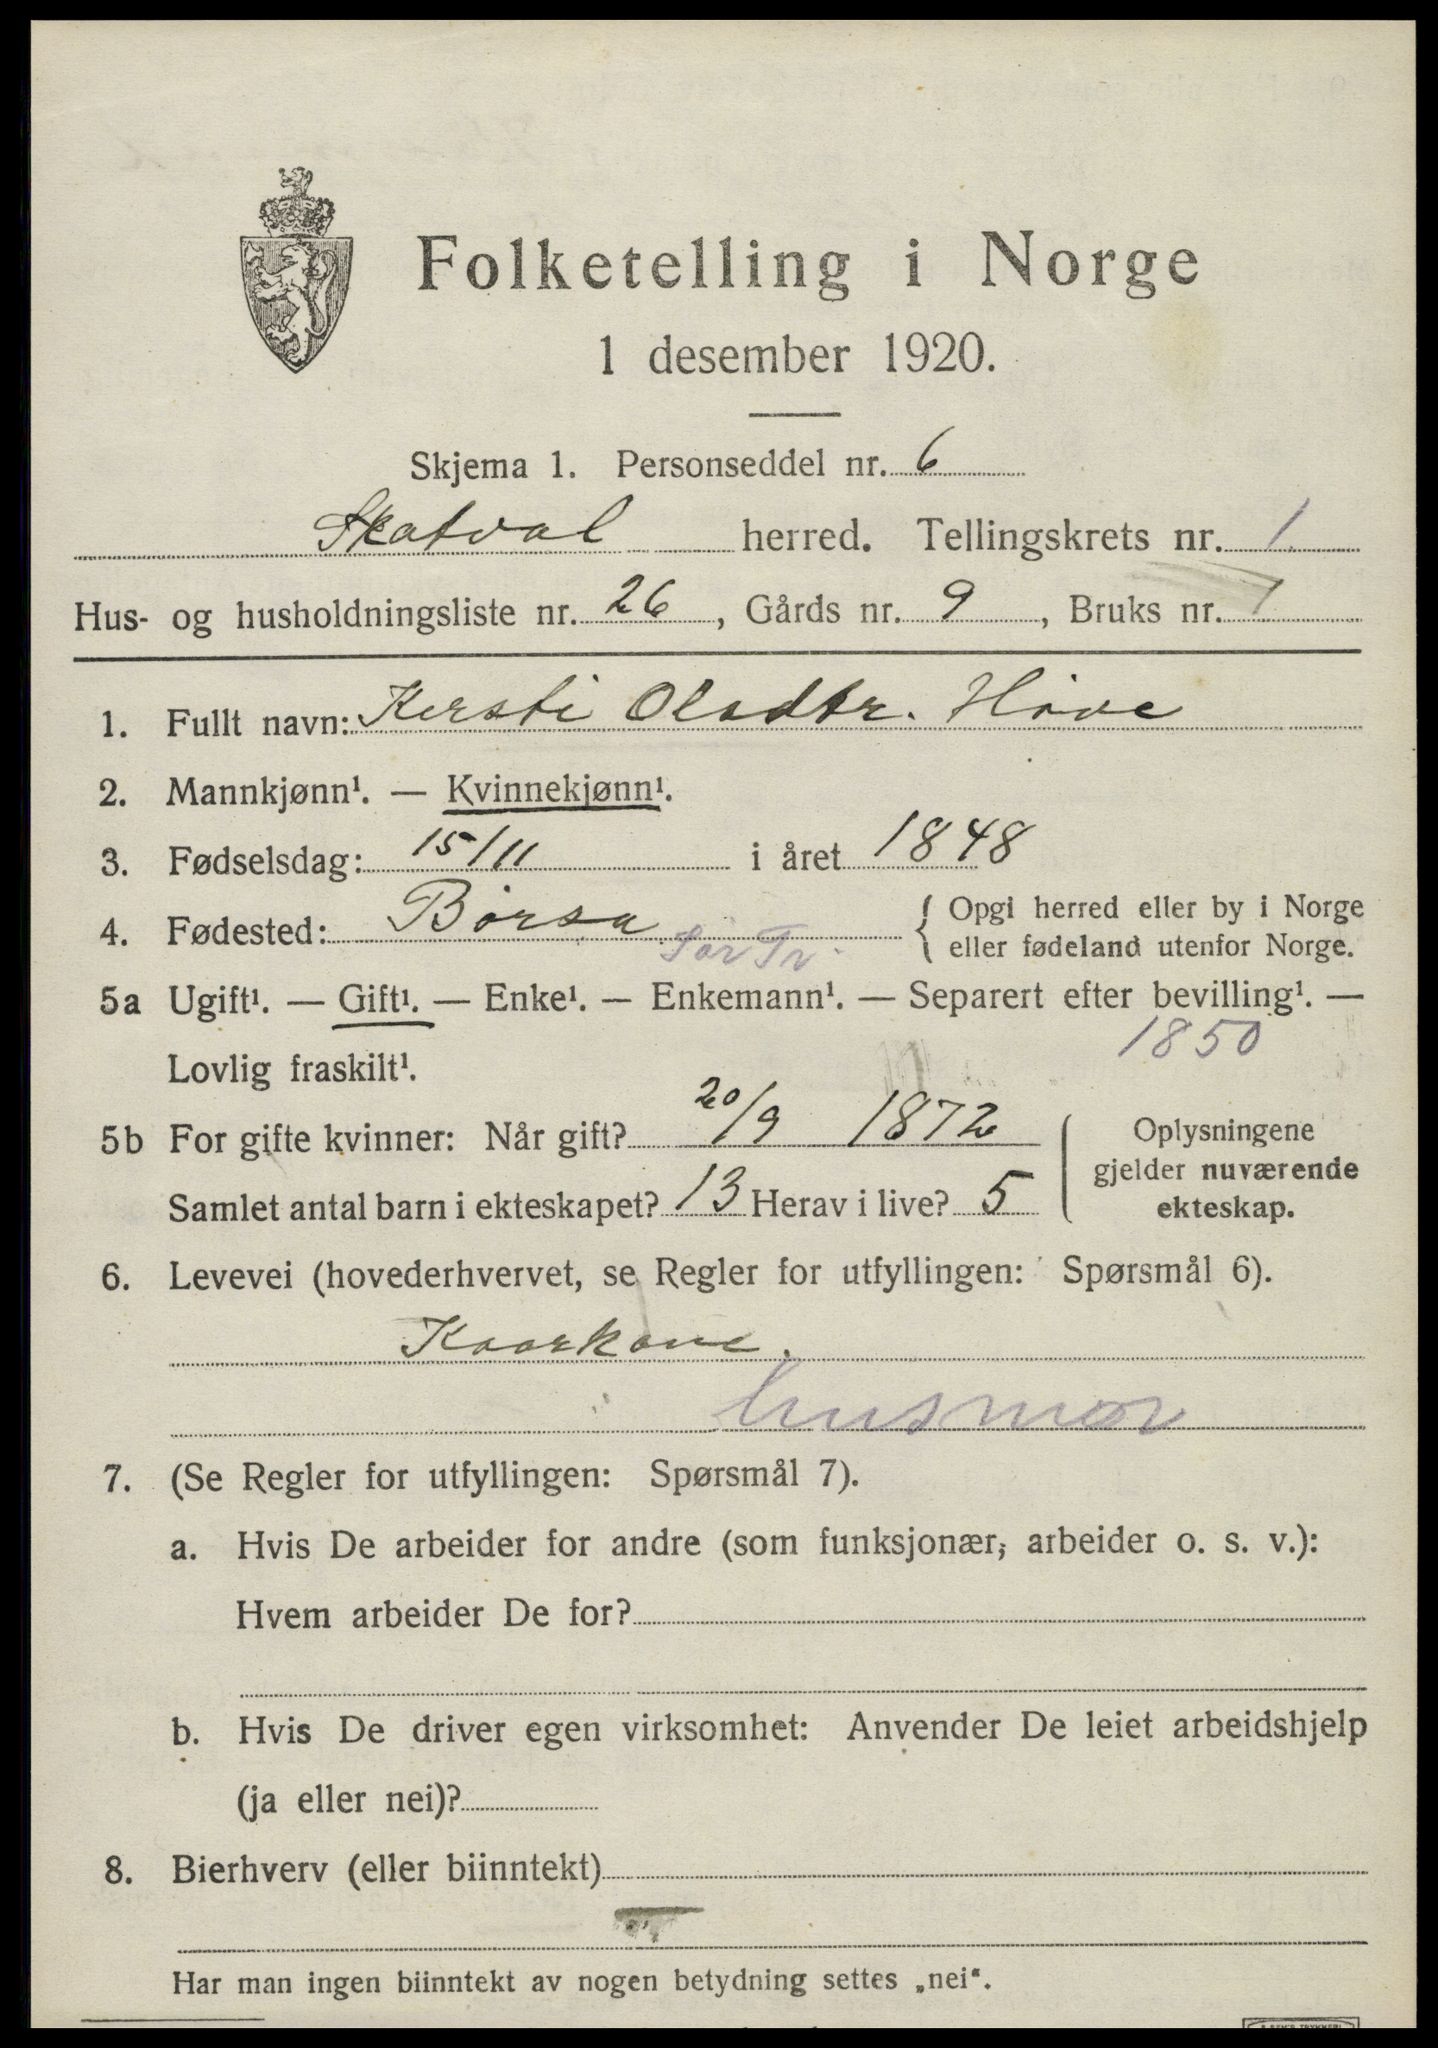 Folketelling i Norge
1 desember 1920.
Skjema 1. Personseddel nr. 6
Skatval herred. Tellingskrets nr. 1
Hus- og husholdningsliste nr. 26, Gårds nr. 9, Bruks nr. 1
1. Fullt navn: Kersti Olsdtr. Høve
2. Mannkjønn¹. — Kvinnekjønn¹.
3. Fødselsdag: 15/11 i året 1848
4. Fødested: Børsa Sør Tr. { Opgi herred eller by i Norge
eller fødeland utenfor Norge.
5a Ugift¹. — Gift¹. — Enke¹. — Enkemann¹. — Separert efter bevilling¹. —
Lovlig fraskilt¹. 1850
5b For gifte kvinner: Når gift? 20/9 1872
Samlet antal barn i ekteskapet? 13 Herav i live? 5
Oplysningene
gjelder nuværende
ekteskap.
6. Levevei (hovederhvervet, se Regler for utfyllingen: Spørsmål 6).
Kaarkone.
husmor
7. (Se Regler for utfyllingen: Spørsmål 7).
a. Hvis De arbeider for andre (som funksjonær, arbeider o. s. v.):
Hvem arbeider De for?
b. Hvis De driver egen virksomhet: Anvender De leiet arbeidshjelp
(ja eller nei)?
8. Bierhverv (eller biinntekt)
Har man ingen biinntekt av nogen betydning settes „nei“.